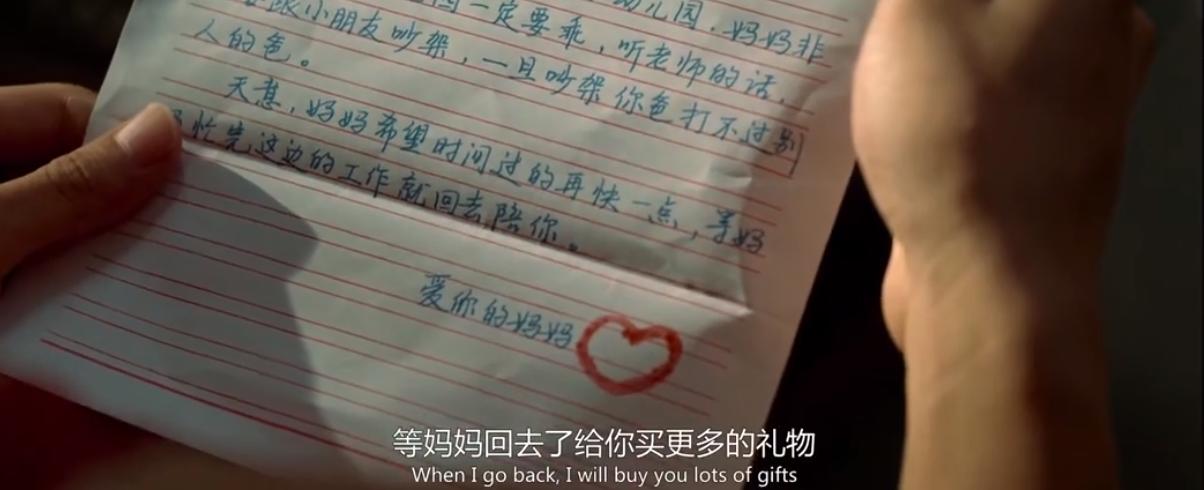 园一定要乖，听老师的话，
幼儿园．妈妈非
跟小朋友吵架，一旦吵架你爸打不过别
人的爸。
天慧，妈妈希望时间过的再快一点，等妈
忙完这边的工作就回去陪你。
爱你的妈妈
等妈妈回去了给你买更多的礼物
When I go back, I will buy you lots of gifts